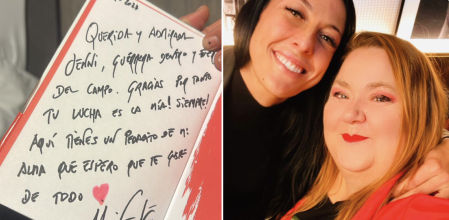 2023
QUERIDA Y ADMIRADA
JENNI, GUERRERA DENTRO Y FUERA
DEL CAMPO. GRACIAS POR TANTO
TU LUCHA ES LA MÍA! SIEMPRE!
AQUÍ TIENES UN PEDACITO DE MI
ALMA QUE ESPERO QUE TE GUSTE
DE TODO